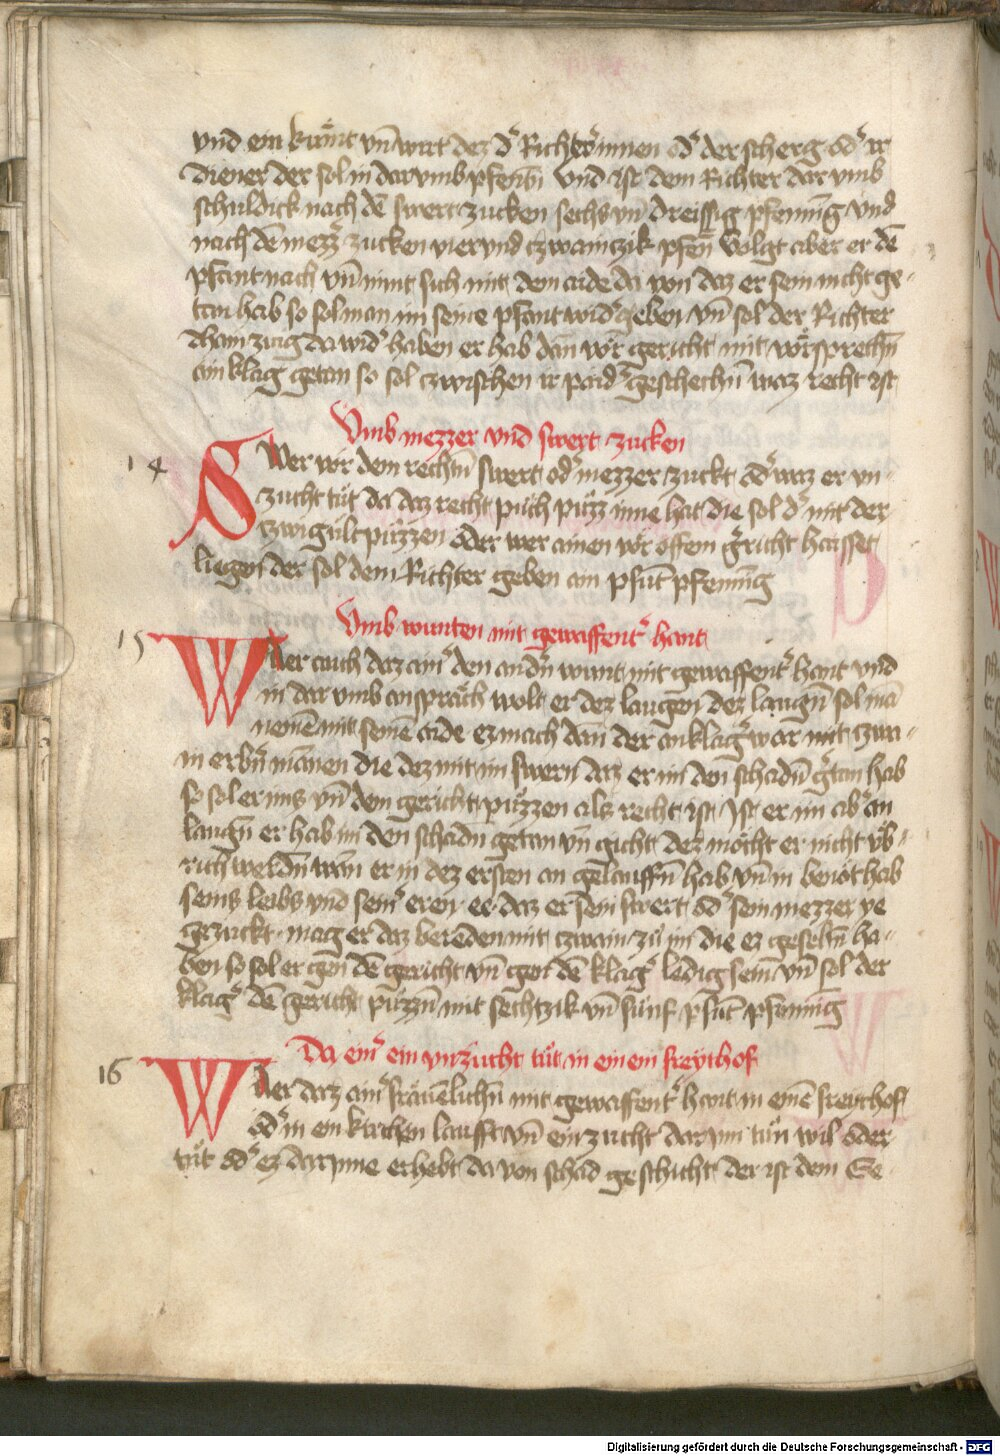 vnd ein kumt vn̄ wirt dez d' Richter innen od' der scherg od' ir
diener der sol in dar vmb pfenden Vnd ist dem Richter dar vmb
schuldick nach dē swert zucken sechs vn̄ dreissig pfennīg vnd
nach dē mezz' zucken vier vnd czwainczik pfen̄ Volgt aber er dē
pfant nach vn̄ nimt sich mit dem aide da von daz er sein nicht ge-
tan hab so sol man im seine pfant wid' geben vn̄ sol der Richter
chain zuig da wid' haben er hab dan̄ vor gericht mit vorsprechn̄
ain klag getan so sol czwischen ir paid' geschechn̄ waz recht ist
Vmb mezzer vnd swert zucken
14 SWer vor dem rechtn̄ swert od' mezzer zuckt od' waz er vn-
zucht tut da daz recht puch puzz inne hat die sol d' mit der
czwigult puzzen oder wer ainen vor offem g'richt haisset
liegen der sol dem Richter geben ain pfūt pfennīg
Vmb wunten mit gewaffent' hant
15 WEr auch daz ain' den andn̄ wunt mit gewaffent' hant vnd
in dar vmb ansprach wolt er dez laugen dez laugn̄ sol mā
nemē mit seinē aide ez mach dan̄ der anklag' war mit zwai-
n erbn̄ mannen die dez mit im swern daz er im den schadn̄ g'tan hab
so sol er ims vn̄ dem gericht puzzen als recht ist Ist er im ab' an
laugn̄ er hab im den schadn̄ getan vn̄ gicht dez mocht er nicht vb'-
rich werdn̄ wan̄ er in dez ersten an gelauffn̄ hab vn̄ in benot hab
seins leibs vnd sein' eren ee daz er sein swert od' sein mezzer ye
gezuckt mag er daz bereden mit czwain zu im die ez gesehn̄ ha-
ben so sol er gen dē gericht vn̄ gen dē klag' ledig sein vn̄ sol der
klag' dē gericht puzzn̄ mit sechtzik vn̄ funf pfūt pfennīg
Da ein' ein vnzucht tut in einem freythof
16 WEr daz ain' frauenlichn̄ mit gewaffent' hant in einē freythof
od' in ein kirchen laufft vn̄ ein zucht dar inn tun wil oder
tut od' ez dar jnne erhebt da von schad geschicht der ist dem Ge-
Digitalisierung gefördert durch die Deutsche Forschungsgemeinschaft - DFG